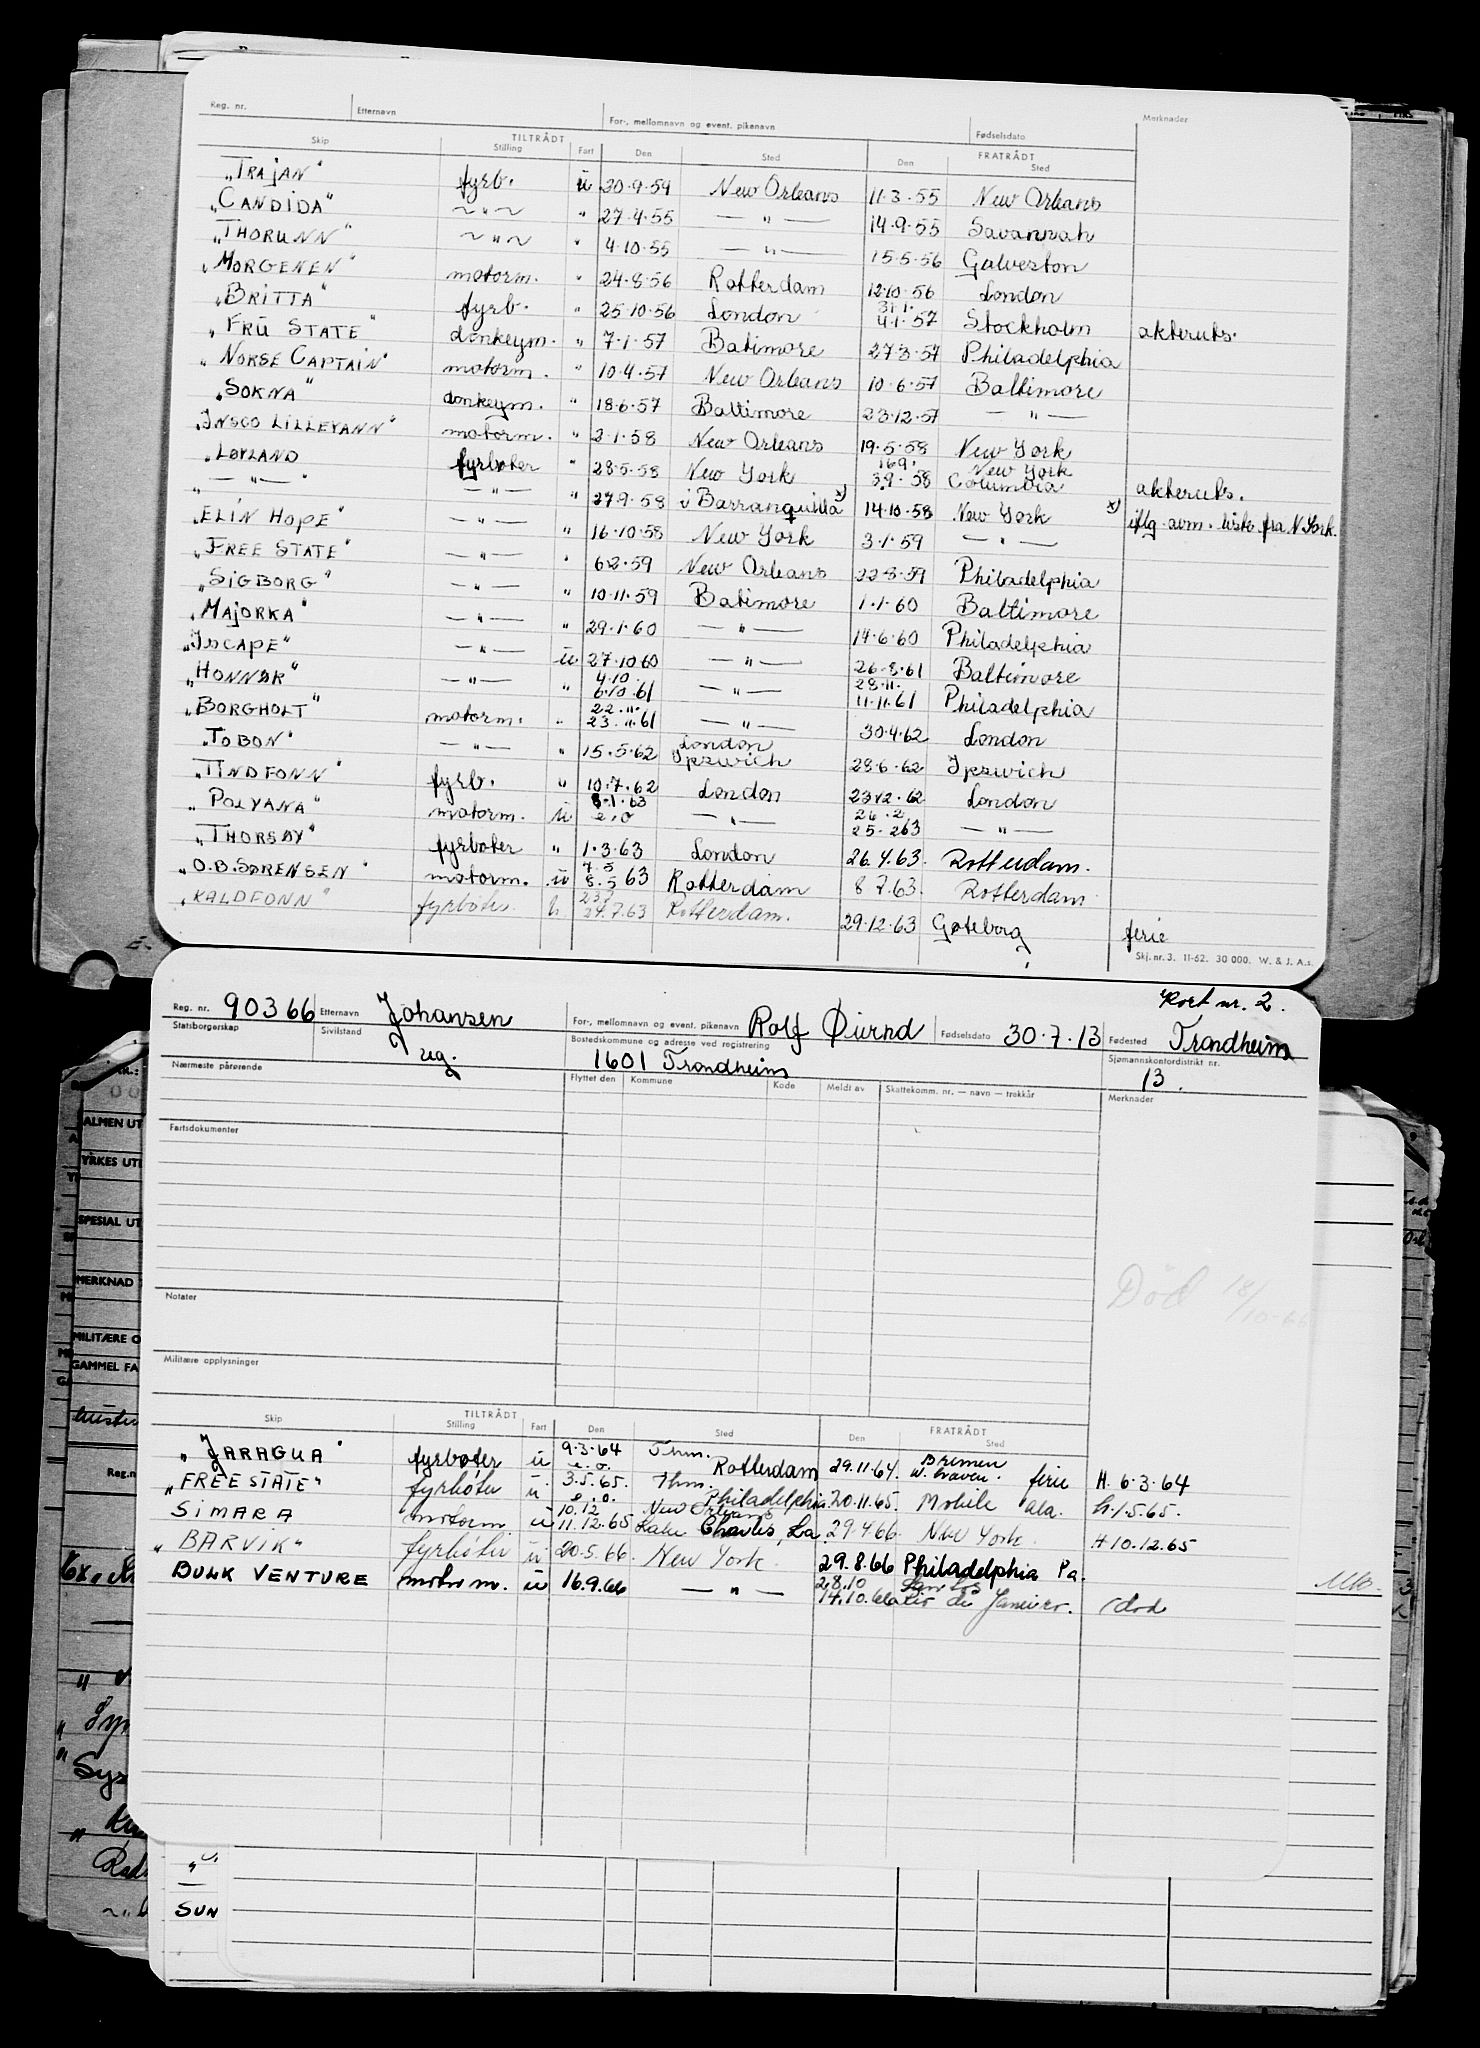 Reg. nr. Etternavn For-, mellomnavn og event. pikenavn Fødselsdato Merknader
TILTRÅDT FRATRÅDT
Skip Stilling Fart Den Sted Den Sted
"TRAJAN" fyrb. u 30·9·54 New Orleans 11·3·55 New Orleans
"CANDIDA" ~"~ " 27·4·55 —"— 14·9·55 Savannah
"THORUNN" ~"~ " 4·10·55 —"— 15·5·56 Galveston
"MORGENEN" motorm. " 24·8·56 Rotterdam 12·10·56 London
"BRITTA" fyrb. " 25·10·56 London 31.1. 4·1·57 Stockholm akteruts.
"FRU STATE" donkeym. " 7·1·57 Batimore 27·3·57 Philadelphia
"NORSE CAPTAIN" motorm. " 10·4·57 New Orleans 10·6·57 Baltimore
"SOKNA" donkeym. " 18·6·57 Baltimore 23·12·57 —"—
"INGCO LILLEVANN" motorm. " 2·1·58 New Orleans 19·5·58 New York
"LØVLAND fyrbøter " 28·5·58 New York 16.9. 3.9·58 New York Columbia akteruts.
" —"— " —"— " 27·9·58 i Barranquilla x) 14·10·58 New York x) iflg. avm. liste fra N. York.
"ELIN HOPE" —"— " 16·10·58 New York 3·1·59 —"—
"FREE STATE" —"— " 6·2·59 New Orleans 22·8·59 Philadelphia
"SIGBORG" —"— " 10·11·59 Batimore 1·1·60 Baltimore
"MAJORKA" —"— " 29·1·60 —"— 14·6·60 Philadelphia
"JOCAPE" —"— u 27·10·60 —"— 26·8·61 Baltimore
"HONNØR" —"— " 4.10. 6·10·61 —"— 28.11. 11·11·61 Philadelphia
"BORGHOLT" motorm. " 22.11. 23.11.61 —"— 30·4·62 London
"TOBON" —"— " 15·5·62 London Ipswich 28·6·62 Ipswich
"TINDFONN" fyrb. " 10·7·62 London 23·12·62 London
"POLYANA" motorm. u 8·1·63 e.o —"— 26.2 25·2 63 —"—
"THORSØY" fyrbøter " 1·3·63 London 26.4.63. Rotterdam.
"O.B. SØRENSEN" motorm. u 7.5 8.5 63 Rotterdam 8 7.63. Rotterdam
"KALDFONN" fyrbøter u 23.7 24.7.63 Rotterdam. 29·12·63 Gøteborg ferie
Skj. nr. 3. 11-62. 30 000. W. & J. A.s.
Kort nr. 2.
Reg. nr. 90366 Etternavn Johansen For-, mellomnavn og event. pikenavn Rolf Øivind Fødselsdato 30·7·13 Fødested Trondheim
Statsborgerskap Sivilstand ug. Bostedskommune og adresse ved registrering 1601 Trondheim Sjømannskontordistrikt nr. 13.
Nærmeste pårørende Flyttet den Kommune Kode Meldt av Skattekomm. nr. — navn — trekkår Merknader
Fartsdokumenter
Død 18/10-66
Notater
Militære opplysninger
TILTRÅDT FRATRÅDT
Skip Stilling Fart Den Sted Den Sted
"JARAGUA" fyrbøter u 9·3·64 e.o. Thm. Rotterdam 29.11.64. Bremen ferie H. 6·3·64
"FREESTATE" fyrbøter u. 3.5.65. e.o. Thm. Philadelphia 20.11.65. Mobile ala. H. 1.5.65.
SIMARA motorm. u 10.12 11.12.65 New Orleans Lake Charles, La 29.4.66. New York. H 10.12.65
"BARVIK" fyrbøter u 20.5.66. New York. 29.8.66 Philadelphia Pa.
BULK VENTURE motorm. u 16.9.66 —"— 28.10 14.10.66 Santos Rio de Janeiro. død
ALMEN UT
YRKES UT
SPESIAL UT
MERKNAD
MILITÆRE O
GAMMEL FA
Reg.n
SUN